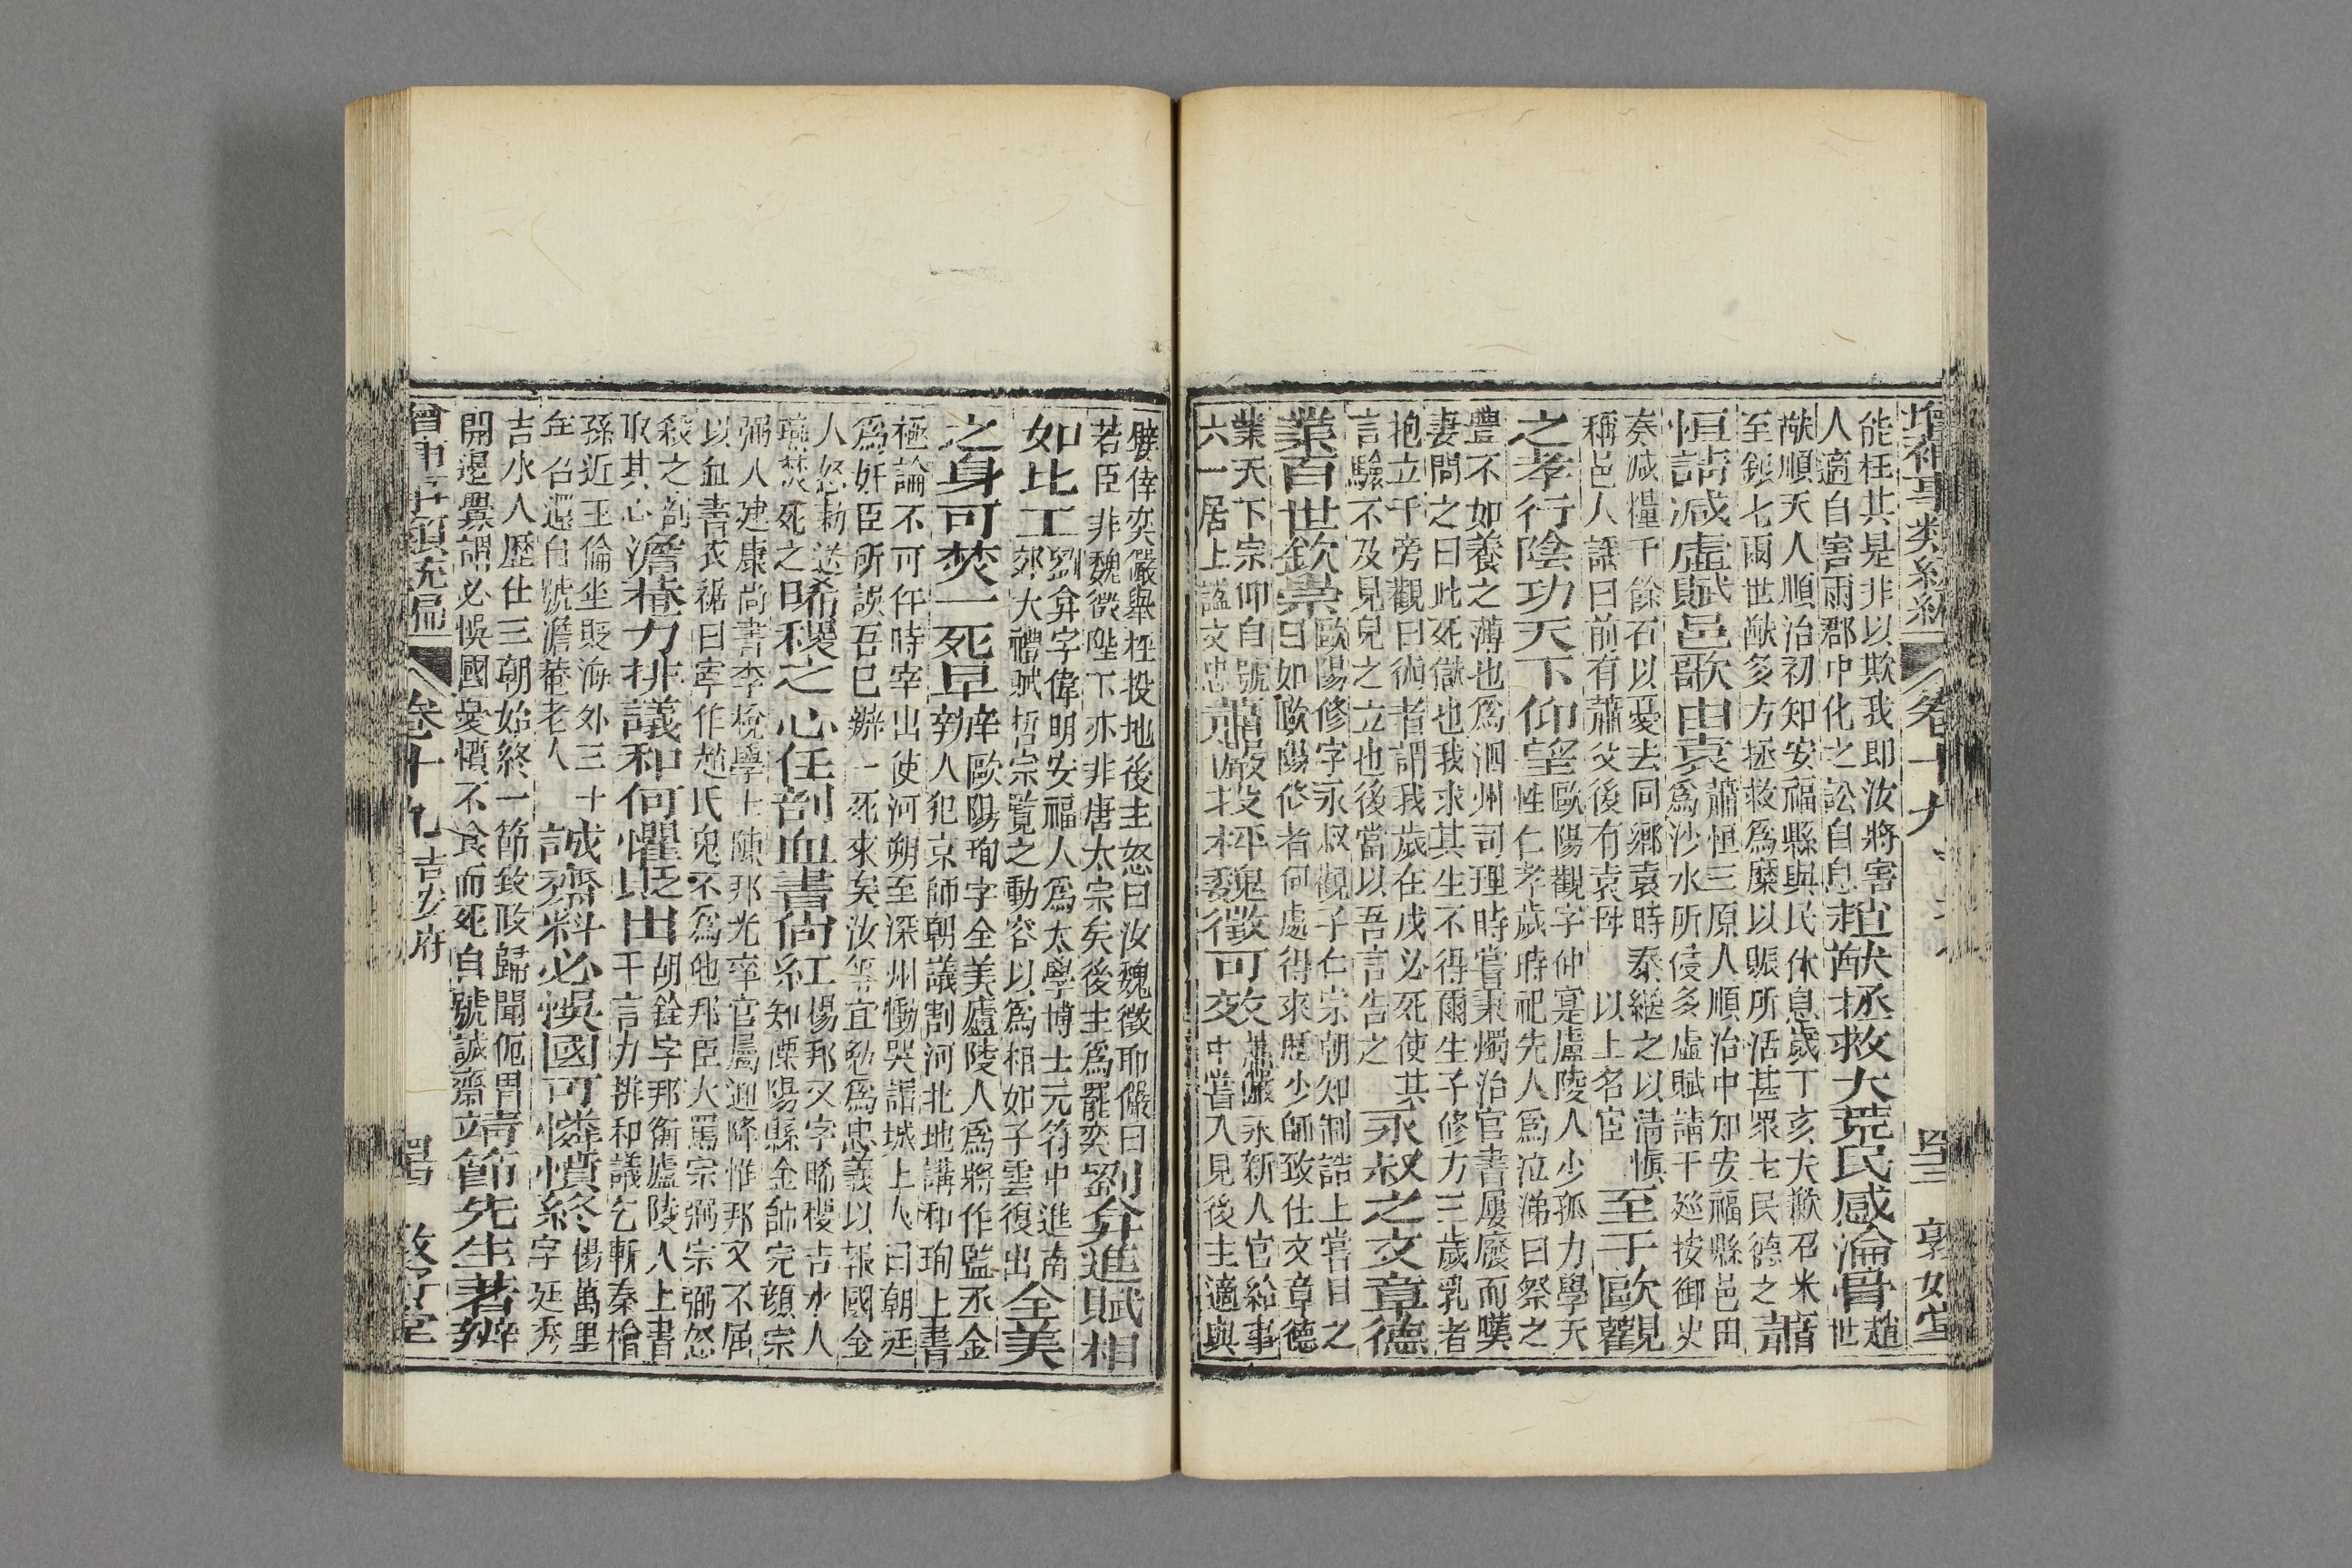 增補事類統編　卷十九　敦好堂
能枉其是非以欺我即汝將害
人適自害爾郡中化之訟自息趙猷拯救大荒民感淪骨趙
猷順天人順治初知安福縣與民休息歲丁亥大歉召米世
至銀七兩世猷多方拯救爲糜以賑所活甚眾士民德之蕭
恒請減虛賦邑歌由袁蕭恒三原人順治中知安福縣邑田
爲沙水所侵多虛賦請于廵按御史
奏減糧千餘石以憂去同鄉袁時泰繼之以清慎
稱邑人謡曰前有蕭父後有袁母　以上名宦　至于歐觀
之孝行陰功天下仰望歐陽觀字仲寔廬陵人少孤力學天
性仁孝歲時祀先人爲泣涕曰祭之
豐不如養之薄也爲泗州司理時嘗秉燭治官書屢廢而嘆
妻問之曰此死獄也我求其生不得爾生子修方三歲乳者
抱立于旁觀曰術者謂我歲在戌必死使其
言驗不及見兒之立也後當以吾言告之　永叔之文章德
業百世欽崇歐陽修字永叔觀子仁宗朝知制誥上嘗目之
曰如歐陽修者何處得來歷少師致仕文章德
業天下宗仰自號
六一居士謚文忠　蕭嚴投枰魏徵可效蕭儼永新人官給事
中嘗入見後主適與
嬖倖奕嚴舉枰投地後主怒曰汝魏徵耶儼曰
若臣非魏徵陛下亦非唐太宗矣後主爲罷奕劉弇進賦相
如比工劉弇字偉明安福人爲太學博士元符中進南
郊大禮賦哲宗覽之動容以爲相如子雲復出全美
之身可焚一死早辦歐陽珣字全美廬陵人爲將作監丞金
人犯京師朝議割河北地講和珣上書
極論不可仵時宰出使河朔至深州慟哭謂城上人曰朝廷
爲奸臣所誤吾已辦一死來矣汝等宜勉爲忠義以報國金
人怒勅送
燕焚死之晞稷之心任剖血書尙紅楊邦乂字晞稷吉水人
知溧陽縣金帥完顏宗
弼入建康尚書李梲學士陳邦光率官屬迎降惟邦乂不屈
以血書衣裾曰寧作趙氏鬼不爲他邦臣大罵宗弼宗弼怒
殺之剖
取其心澹菴力排議和何懼貶由胡銓字邦衡廬陵人上書
千言力排和議乞斬秦檜
孫近王倫坐貶海外三十
年召還自號澹菴老人　誠齋料必悞國可憐憤終楊萬里
字廷秀
吉水人歷仕三朝始終一節致政歸聞侂冑
開邊釁謂必悞國憂憤不食而死自號誠齋靖節先生著辨
增補事類統編　卷十九　吉安府　敦好堂